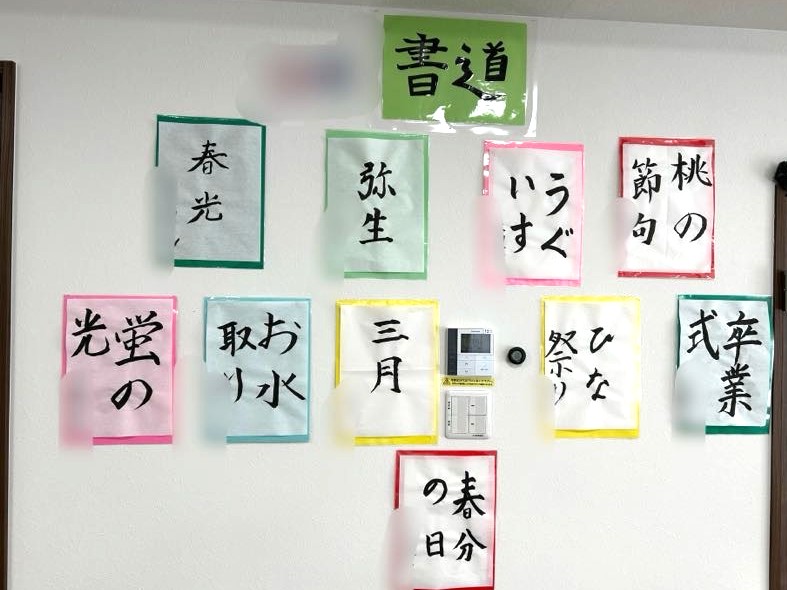 書道
春光
弥生
うぐ
いす
桃の
節句
蛍の
光
お水
取り
三月
ひな
祭り
卒業
式
春分
の日